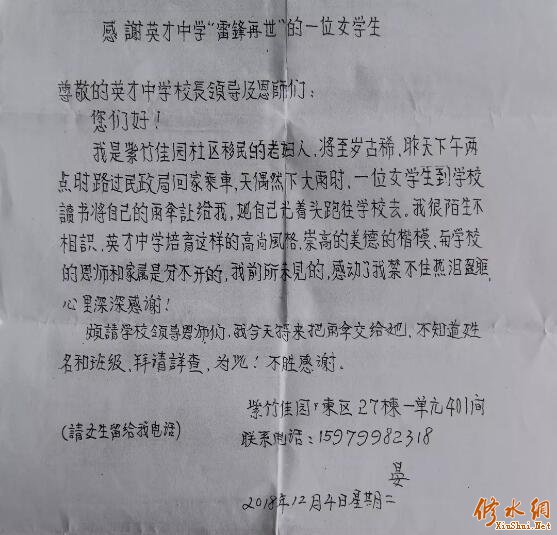 感謝英才中学“雷鋒再世”的一位女学生
尊敬的英才中学校長領导及恩師们:
您们好!
我是紫竹佳园社区移民的老妇人,将至岁古稀,昨天下午两
点时路过民政局回家乘車,天偶然下大雨时,一位女学生到学校
讀书将自己的雨傘让给我,她自己光着头跑往学校去。我很陌生不
相識,英才中学培育这样的高尚風格,崇高的美德的楷模,每学校
的恩师和家属是分不开的,我前所未見的,感动了我禁不住热泪盈眶,
心里深深感谢!
煩請学校領导恩师们,我今天特来把雨傘交给她,不知道姓
名和班级,拜请詳查,为此!不胜感谢。
紫竹佳园,東区27棟一单元401间
(請女生留给我电话)
联系电话:15979982318
晏
2018年12月4日星期二
修水網
XiuShui.Net